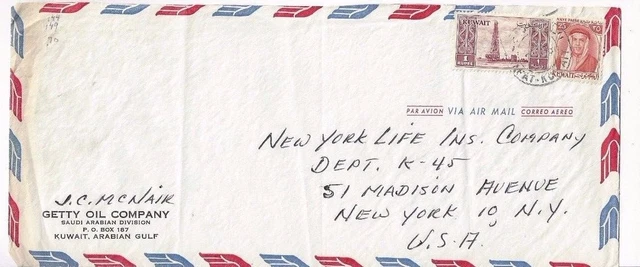 KUWAIT
1
1
KUWAIT
PAR AVION VIA AIR MAIL CORREO AEREO
NEW YORK LIFE INS. COMPANY
DEPT. K-45
51 MADISON AVENUE
NEW YORK 10, N.Y.
U.S.A.
J.C. MCNAIR
GETTY OIL COMPANY
SAUDI ARABIAN DIVISION
P. O. BOX 187
KUWAIT, ARABIAN GULF